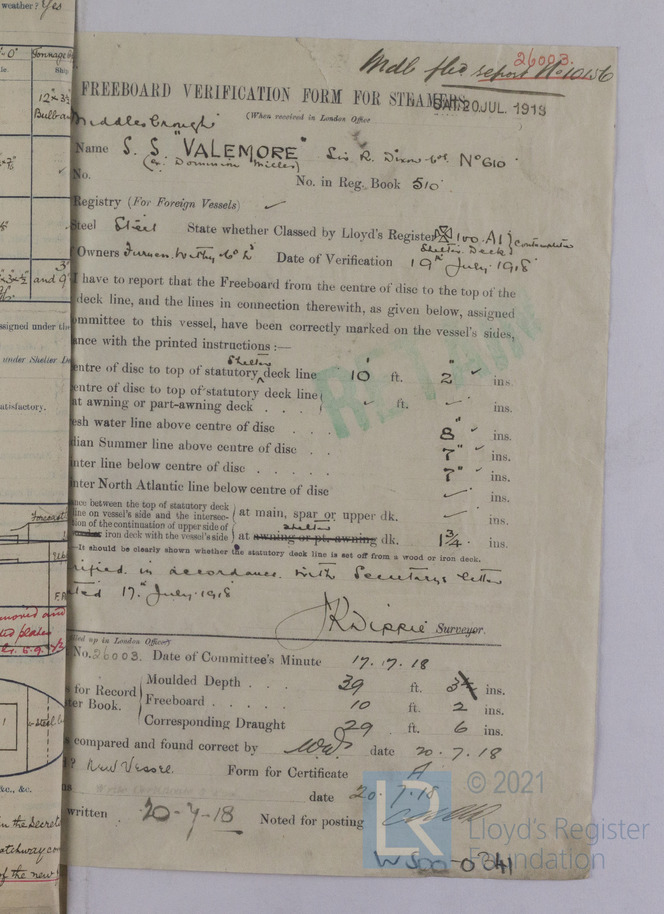 weather? Yes
26003.
Mdb flea report No 10156
FREEBOARD VERIFICATION FORM FOR STEAMERS
SAT. 20 JUL. 1918
(When received in London Office
Middlesbrough
Name S.S "VALEMORE" Sir R. Dixon & Co. No 610
(ex Dominion Miller)
No. No. in Reg. Book 510
Registry (For Foreign Vessels)
Steel Steel State whether Classed by Lloyd's Register 100.A1 continuation
Shelter Deck
Owners Furness Withy Co Ld Date of Verification 19th July 1918
I have to report that the Freeboard from the centre of disc to the top of the
deck line, and the lines in connection therewith, as given below, assigned
ommittee to this vessel, have been correctly marked on the vessel's sides,
ance with the printed instructions :—
Shelter
entre of disc to top of statutory deck line 10 ft. 2 ins.
entre of disc to top of statutory deck line
at awning or part-awning deck . . . ft. ins.
esh water line above centre of disc . . . 8" ins.
dian Summer line above centre of disc . . 7" ins.
inter line below centre of disc . . . . . 7" ins.
inter North Atlantic line below centre of disc ins.
ance between the top of statutory deck
line on vessel's side and the intersec- at main, spar or upper dk. ins.
tion of the continuation of upper side of shelter
iron deck with the vessel's side at awning or pt. awning dk. 1¾ ins.
—It should be clearly shown whether the statutory deck line is set off from a wood or iron deck.
rified in accordance with Secretarys letter
ated 17th July 1918
JK Dippie Surveyor.
RETURN
illed up in London Office
No. 26003. Date of Committee's Minute 17.17.18
Moulded Depth . . . 39 ft. 3 ins.
s for Record Freeboard . . . . . 10 ft. 2 ins.
ter Book. Corresponding Draught 29 ft. 6 ins.
s compared and found correct by date 20.7.18
? New Vessel. Form for Certificate A
date 20.7.18
written 20-7-18 Noted for posting
LR © 2021
Lloyd's Register
Foundation
W500-0241
Tonnage
Ship
12" x 3½
Bulb
and 9"
ssigned under th
under Shelter De
atisfactory.
Forecast
moved and
plates
steel
&c., &c.
in the Secret
atchway co
of the new